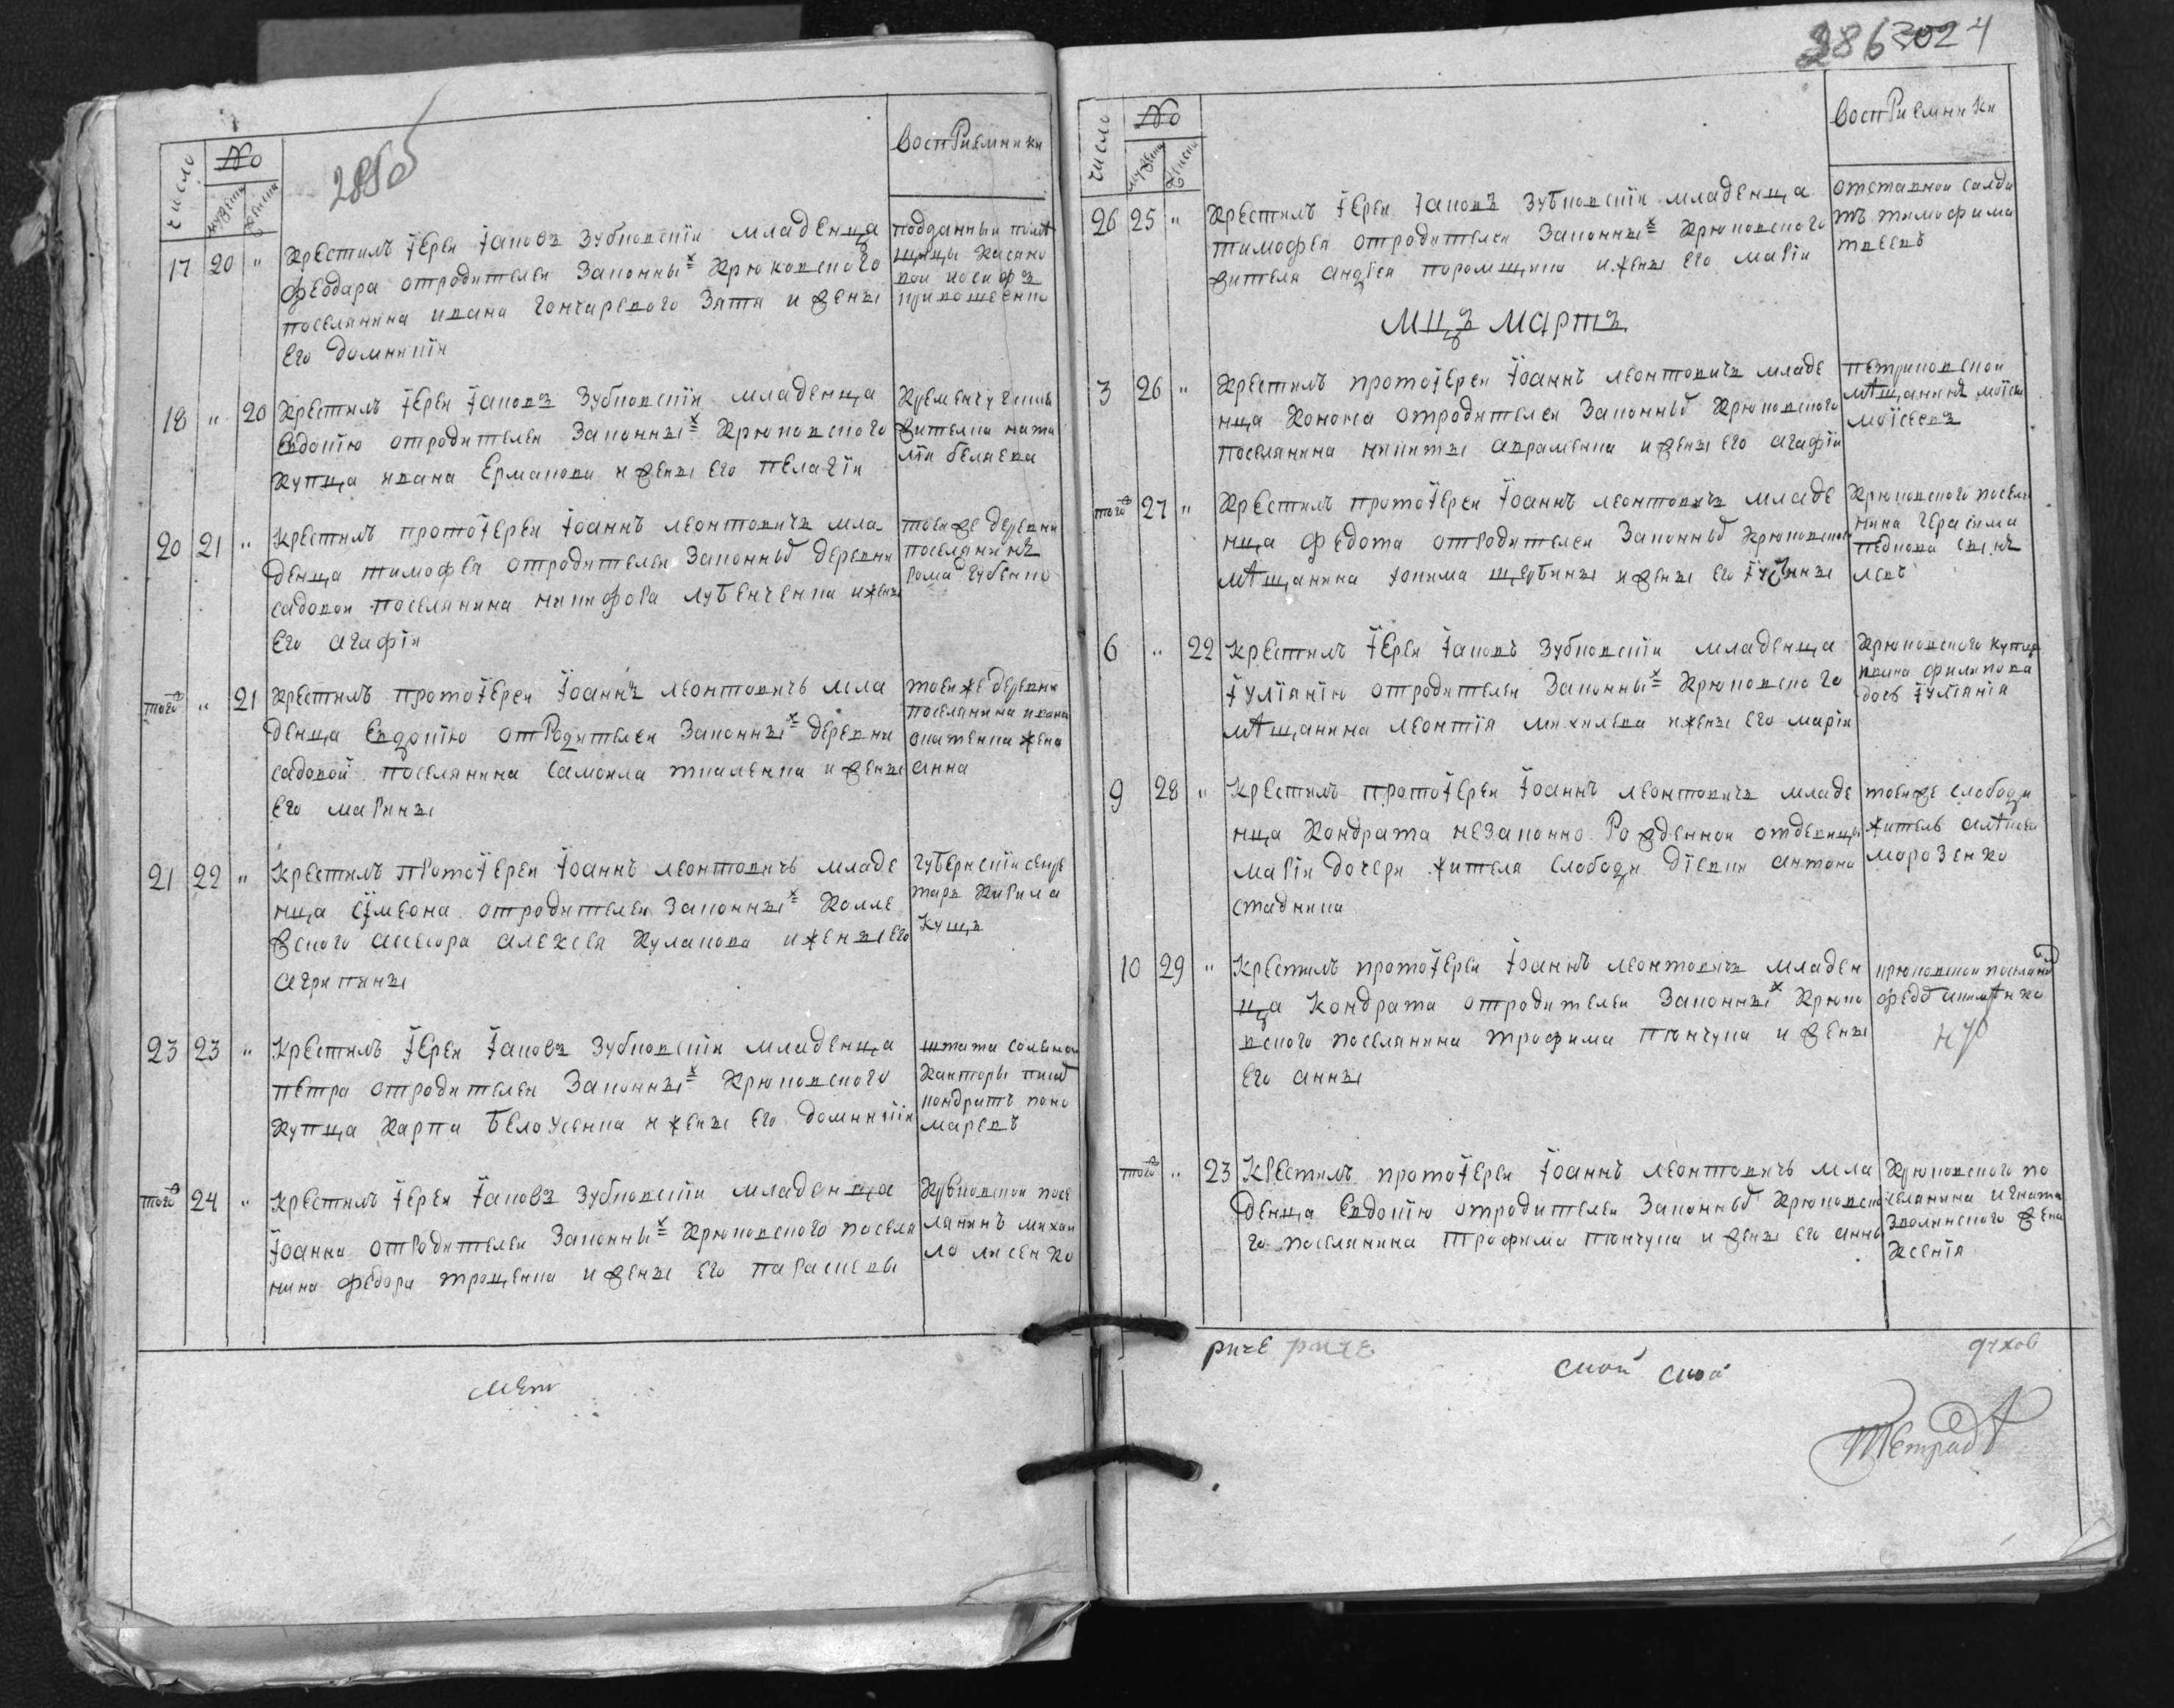 285об
число
№
мужеска
женска
Воспрiемники
17 20 " Крестилъ Iерей Iаковъ Зубковскiй младенца
феодара отродителей Законныхъ Крюковского
поселянина ивана Гончарского Зятя и жены
Его домникiи
подданный помѣ
щицы Касано
вой иосифъ
18 " 20 Крестилъ Iерей Iаковъ Зубковскiй младенца
Евдокiю отродителей Законныхъ Крюковского
Купца ивана Ермакова и жены Его пелагiи
Кременчугская
жителка ната
лiя беляева
20 21 " Крестилъ протоIерей Iоаннъ леонтовичъ мла
денца тимофея отродителей Законныхъ деревни
садовой поселянина никифора лубенченка и жены
Его агафiи
тоейже деревни
поселянинъ
рома губенко
того 21 Крестилъ протоIерей Iоаннъ леонтовичъ мла
денца Евдокiю отРодителей Законныхъ деревни
садовой поселянина самоила ткаленка и жены
Его марины
тоейже деревни
поселянина ивана
жена
анна
21 22 " Крестилъ протоIерей Iоаннъ леонтовичъ младе
нца сумеона отродителей Законныхъ Колле
жского асесора алексея Кулакова и жены Его
агрипины
губернскiй секре
тарь Кирила
Куща
23 23 " Крестилъ Iерей Iаковъ Зубковскiй младенца
петра отродителей Законныхъ Крюковского
Купца Карпа Белоусенка и жены Его домникiи
штата соляной
Канторы
кондратъ поно
маревъ
того 24 " Крестилъ Iерей Iаковъ Зубковскiй младенца
Iоанна отродителей Законныхъ Крюковского поселя
нина федора трощенка и жены Его параскевы
Крюковской посе
лянинъ михаи
ло лисенко
286 302 4
число
№
мужеска
женска
Воспрiемники
26 25 " Крестилъ Iерей Iаковъ Зубковскiй младенца
тимофея отродителей Законныхъ Крюковского
жителя андрея паромщика и жены Его марiи
отставной салда
тъ тимофи ма
твеевъ
мцъ мартъ
3 26 " Крестилъ протоIерей Iоаннъ леонтовичъ младе
нца Конона отродителей Законныхъ Крюковского
поселянина никиты авраменка и жены Его агафiи
петриковской
мѣщанинъ моiсей
моiсеевъ
того 27 " Крестилъ протоIерей Iоаннъ леонтовичъ младе
нца федота отродителей Законныхъ Крюковского
мѣщанина Iокима щербины и жены Его
Крюковского поселя
нина герасима
6 " 22 Крестилъ Iерей Iаковъ Зубковскiй младенца
Iулiанiю отродителей Законныхъ Крюковского
мѣщанина леонтiя михилева и жены Его марiи
Крюковского купца
ивана филипова
дочь Iулiанiя
9 28 " Крестилъ протоIерей Iоаннъ леонтовичъ младе
нца Кондрата незаконно Рожденной отдевицы
марiи дочери жителя слободи дiевки антона
стадника
тоейже слободи
житель алѣксей
морозенко
10 29 " Крестилъ протоIерей Iоаннъ леонтовичъ младен
ца Кондрата отродителей Законныхъ Крюко
вского поселянина трофима пончука и жены
Его анны
крюковской поселянинъ
того " 23 Крестилъ протоIерей Iоаннъ леонтовичъ мла
денца Евдокiю отродителей Законныхъ Крюковско
го поселянина трофима пончука и жены Его анны
Крюковского по
селянина игната
жена
Ксенiя